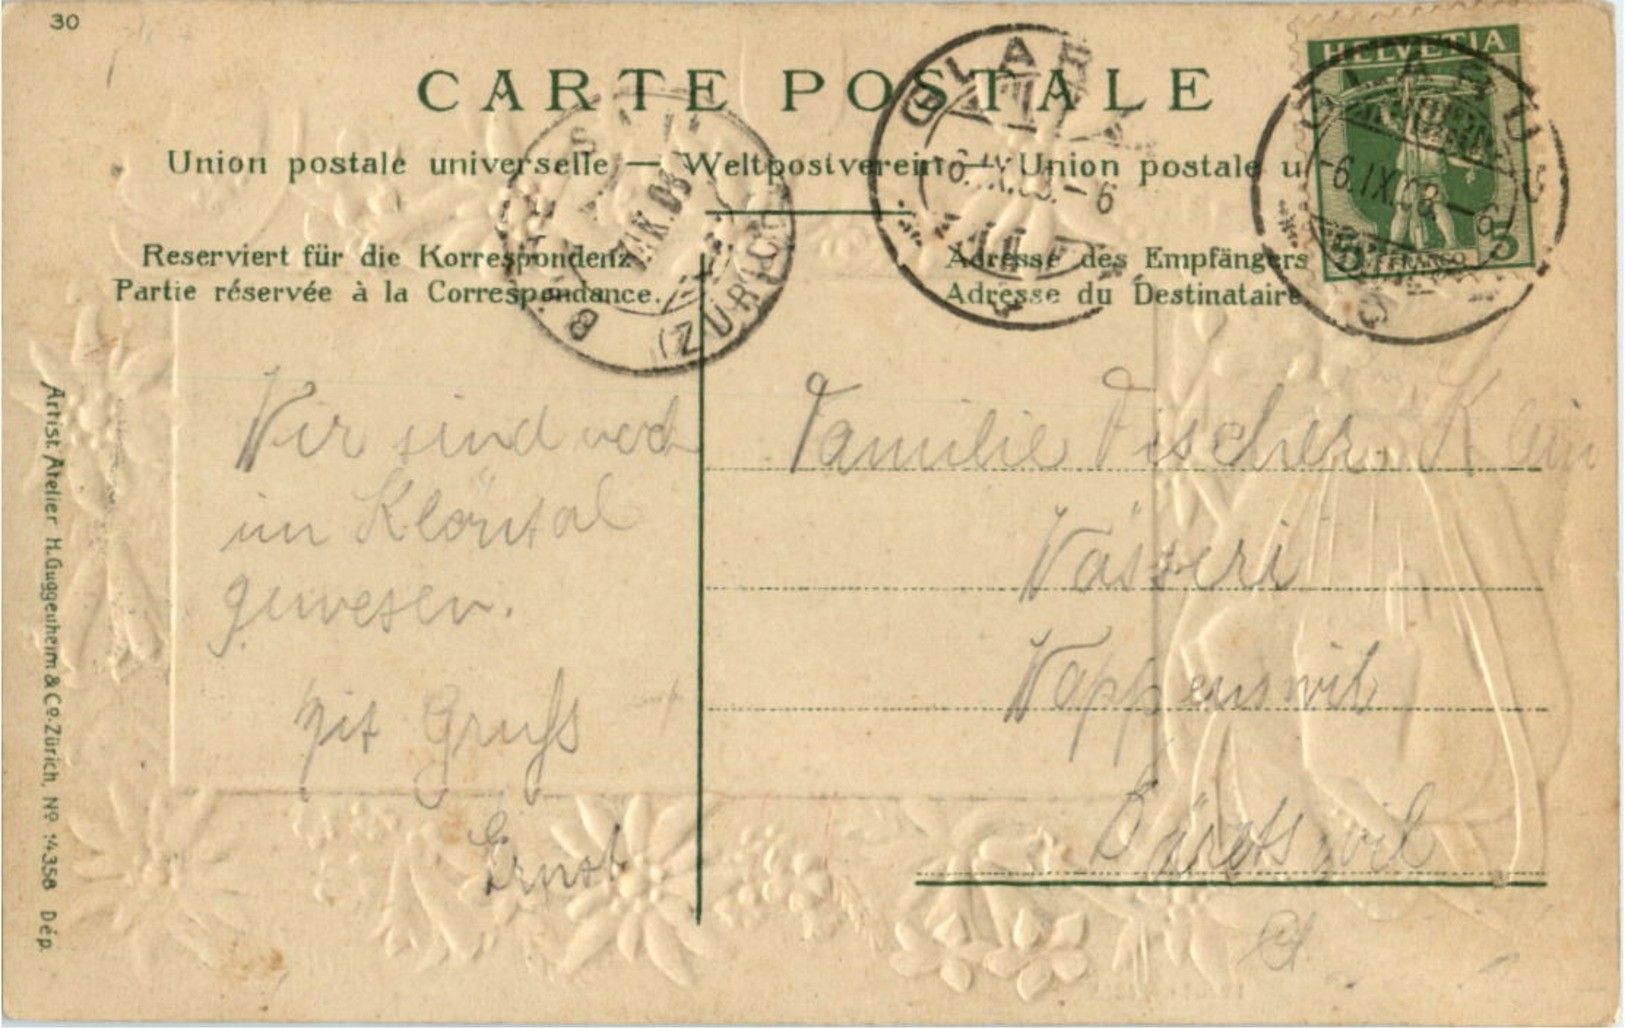 30
CARTE POSTALE
Union postale universelle — Weltpostverein — Union postale u
Reserviert für die Korrespondenz
Partie réservée à la Correspondance.
Adresse des Empfängers
Adresse du Destinataire
HELVETIA
5
FRANCO
5
GLARUS
-6.IX.08.-6
GLARUS
-6.IX.08.-6
(ZÜRICH)
Wir sind noch
im Klöntal
gewesen.
Mit Gruss
Ernst
Familie Fischer
Wappenswil
Bäretswil
Artist. Atelier H. Guggenheim & Co. Zürich, No 14358 Dép.